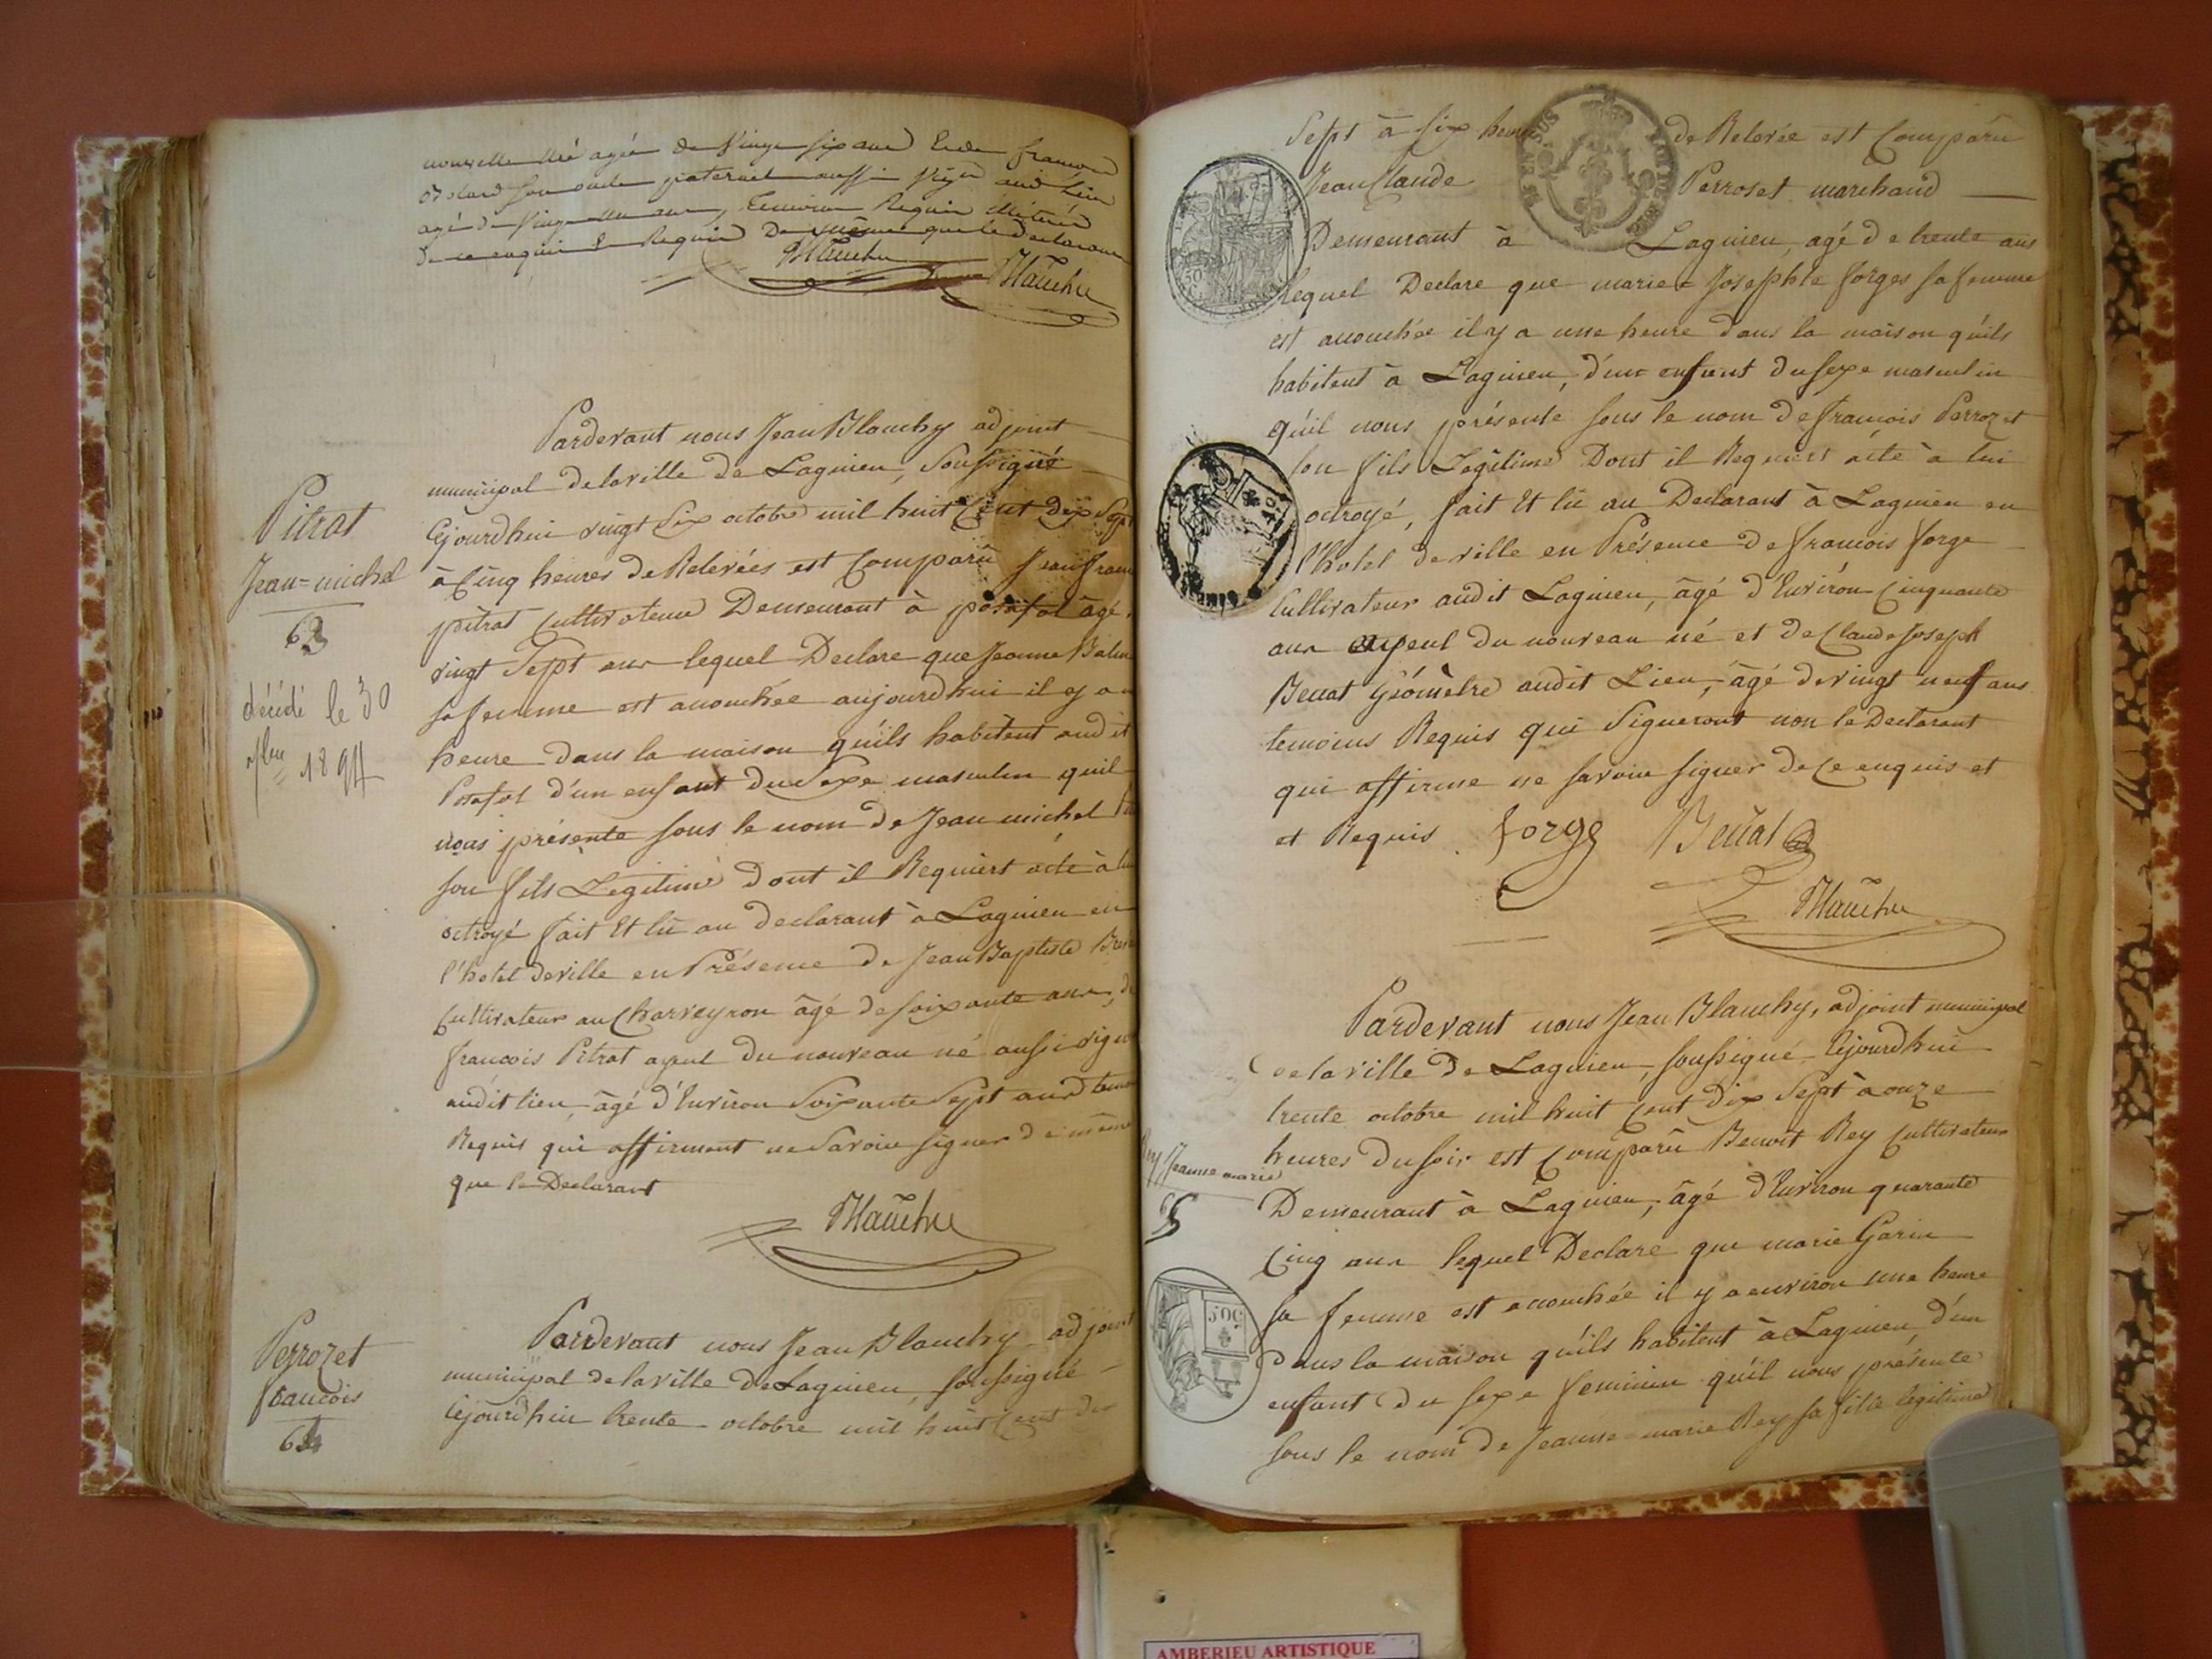 nouvelle née agée de vingt six ans Et de francois
son oncle paternel aussi vigneron audit Lieu
agé de vingt un ans, temoins Requis illitérés
de ce enquis et Requis De même que le declarant
Blanchy Blanchy
Pitrat
Jean=michel
63
décédé le 30
9bre 1894
Pardevant nous Jean Blanchy adjoint
municipal de la ville de Lagnieu, Soussigné
Cejourdhui vingt Six octobre mil huit Cent Dix Sept
à Cinq heures de Relevées est Comparû Jean francois
pitrat Cultivateur Demeurant à posafol âgé
vingt Sept ans lequel Declare que Jeanne
sa femme est accouchée aujourdhui il y a une
heure dans la maison qu'ils habitent audit
Posafol d'un enfant du Sexe masculin quil
nous présente sous le nom de Jean michel
son fils Légitime dont il Requiert acte à lui
octroyé fait Et lû au declarant à Lagnieu en
l'hotel deville en Présence de Jean Baptiste
Cultivateur au Charveyron âgé de soixante ans, de
francois Pitrat ayeul du nouveau né aussi vigneron
audit lieu, âgé d'Environ Soixante Sept ans temoins
Requis qui affirment ne Savoir signer de même
que le Declarant
Blanchy
Perrozet
francois
64
Pardevant nous Jean Blanchy adjoint
municipal de la ville de Lagnieu, soussigné
Cejourdhui trente octobre mil huit Cent dix
Sept à six heures de Relevée est Comparû
Jean Claude Perroset marchand
Demeurant à Lagnieu, agé de trente ans
lequel Declare que marie Josephte forges sa femme
est accouchée il y a une heure dans la maison qu'ils
habitent à Lagnieu, d'un enfant du sexe masculin
qu'il nous présente sous le nom de francois Perrozet
son fils Légitime Dont il Requiert acte à lui
octroyé, fait Et lû au Declarant à Lagnieu en
l'hotel de ville en Présence de francois forge
Cultivateur audit Lagnieu, âgé d'Environ Cinquante
ans ayeul du nouveau né et de Claude Joseph
Benat Géomètre audit Lieu, âgé de vingt neuf ans
temoins Requis qui Signeront non le Declarant
qui affirme ne savoir signer de Ce enquis et
et Requis forge Benat
Blanchy
Pardevant nous Jean Blanchy, adjoint municipal
de la ville de Lagnieu, soussigné Cejourdhui
trente octobre mil huit Cent Dix Sept à onze
heures du soir est Comparû Benoit Rey Cultivateur
Rey Jeanne marie
65
Demeurant à Lagnieu, âgé d'Environ quarante
Cinq ans lequel Declare que marie Garin
sa femme est accouchée il y a environ une heure
Dans la maison qu'ils habitent à Lagnieu, d'un
enfant du sexe feminin qu'il nous présente
sous le nom de Jeanne marie Rey sa fille legitime
50C
AMBERIEU ARTISTIQUE